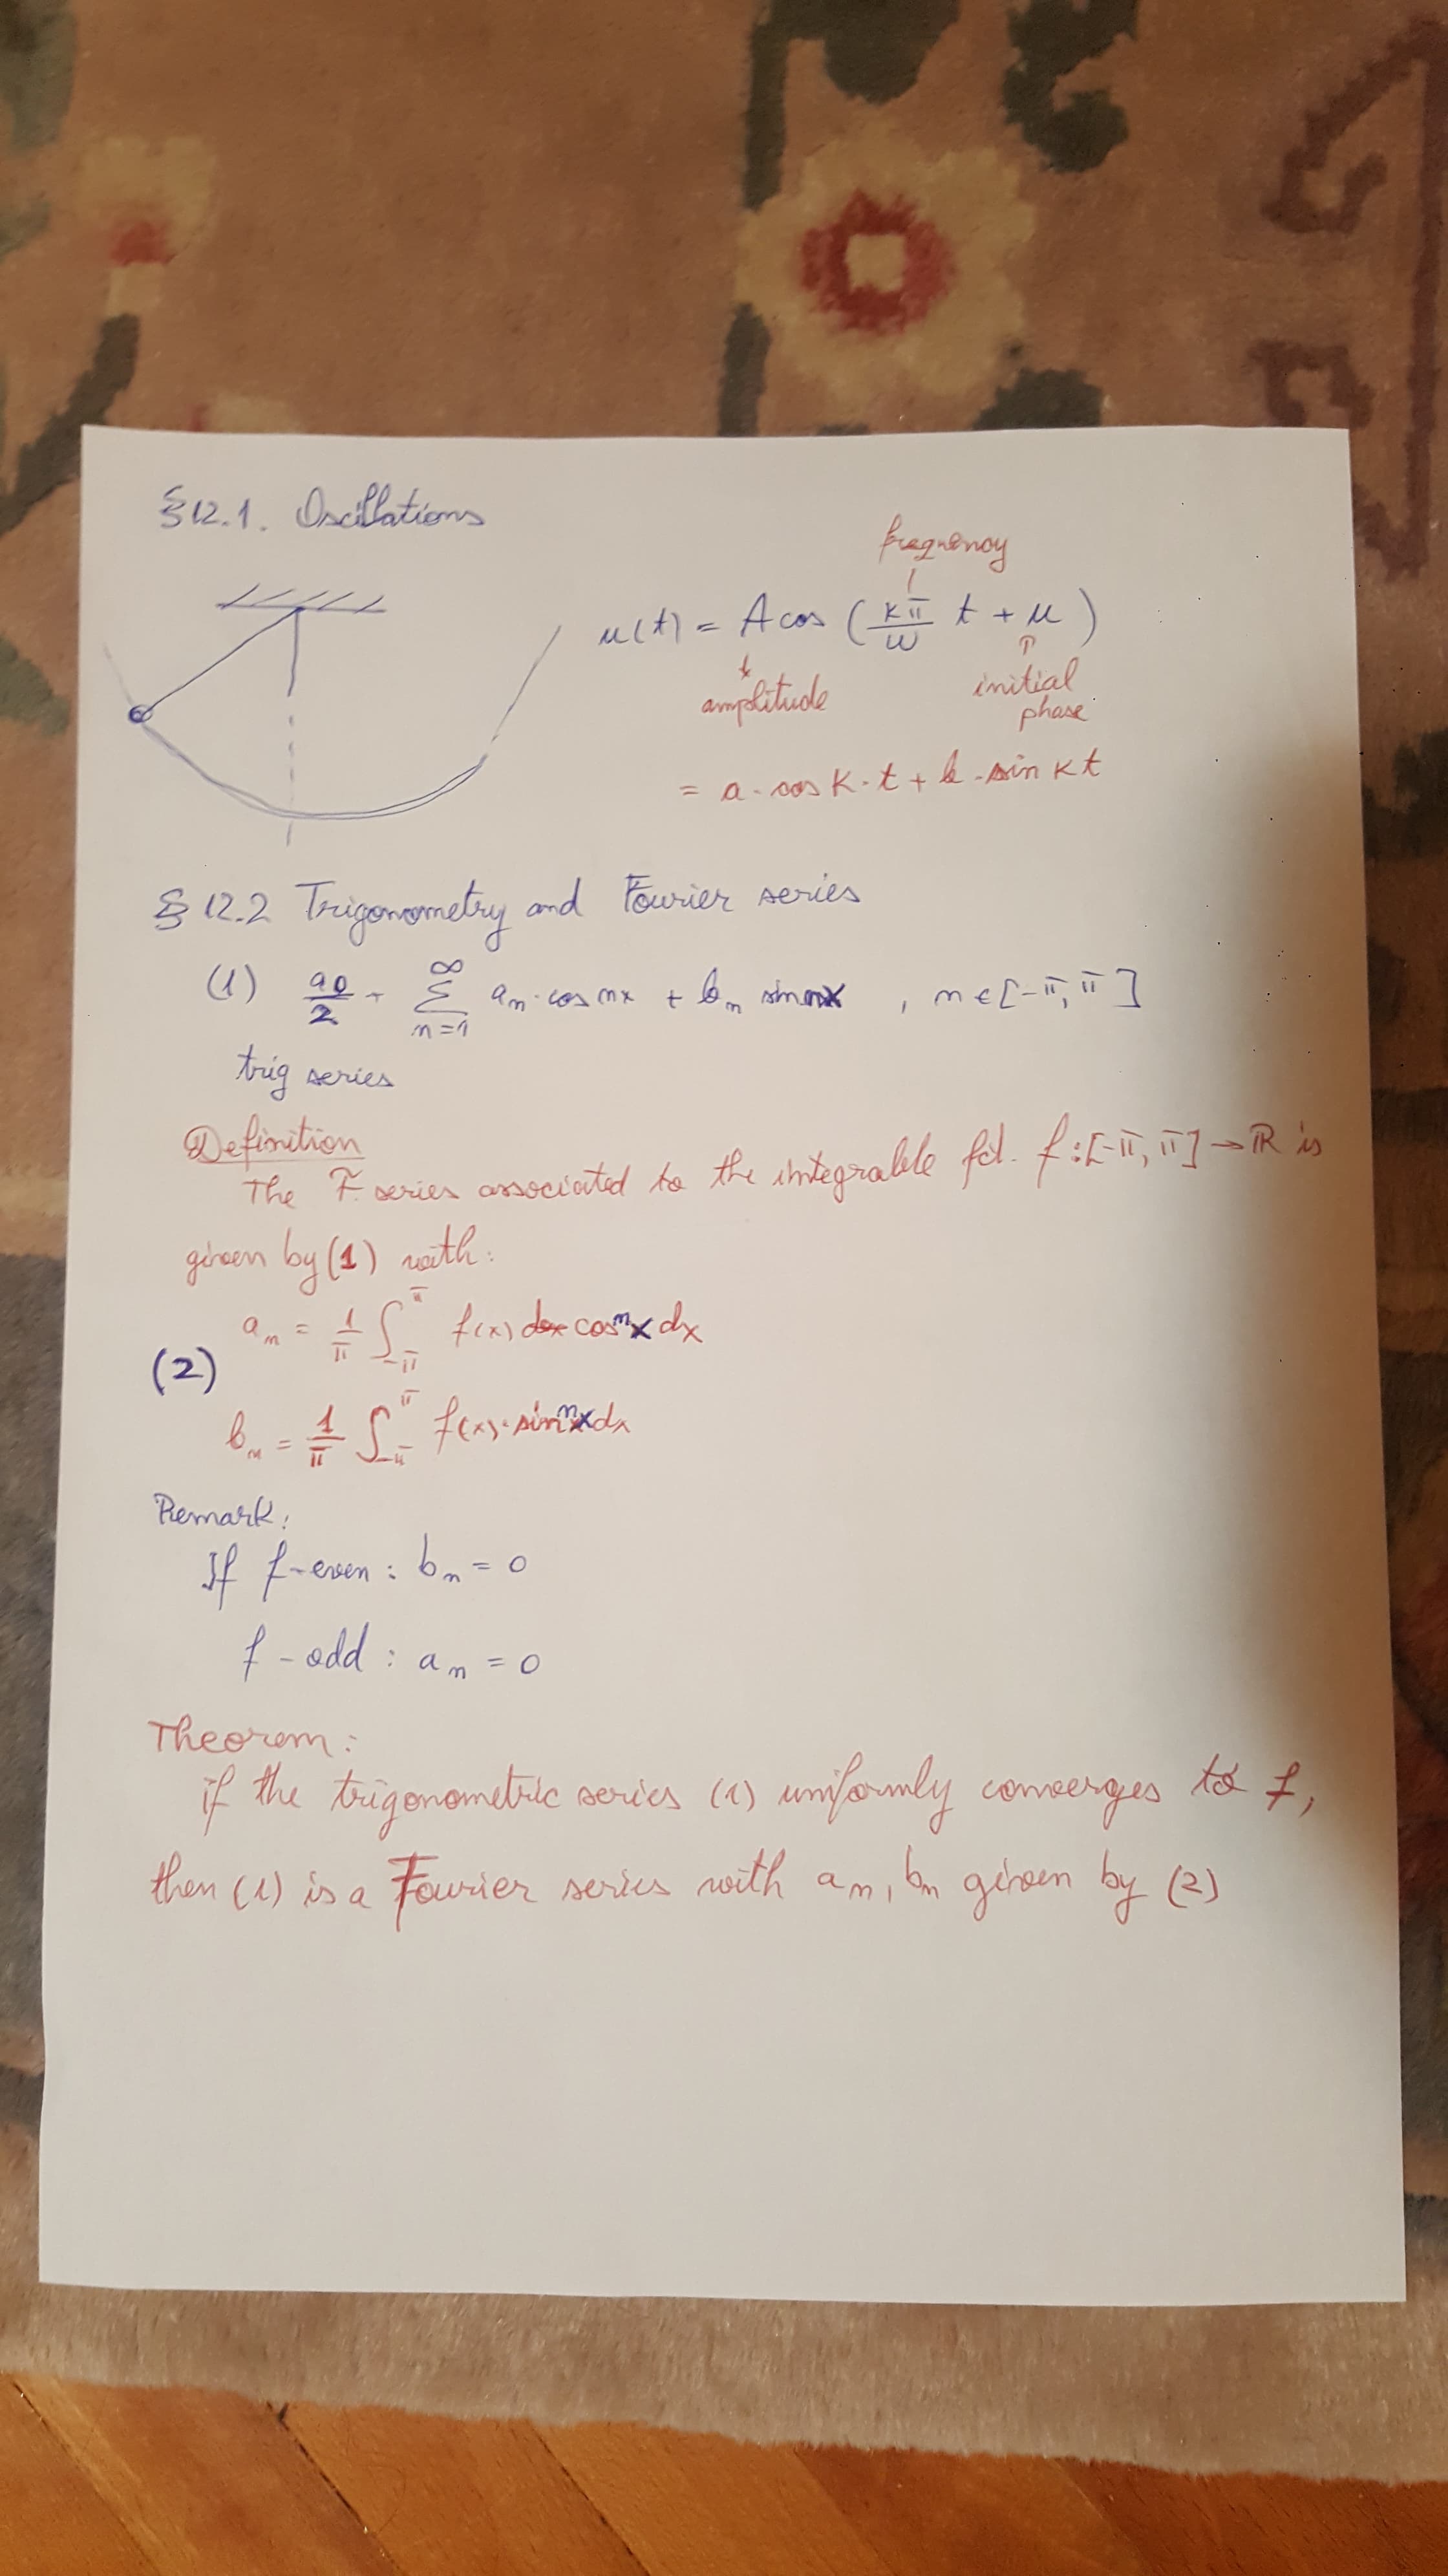 §12.1. Oscillations
frequency
u(t) = A cos (kπ/ω t + μ)
amplitude
initial
phase
= a · cos k · t + b · sin kt
§ 12.2 Trigonometry and Fourier series
(1) a0/2 + ∞ Σ n=1 an · cos nx + bn sin nx , n ∈ [-π, π]
trig series
Definition
The F. series associated to the integrable fct. f : [-π, π] → ℝ is
given by (1) with:
an = 1/π ∫-π^π f(x) cos nx dx
(2)
bn = 1/π ∫-π^π f(x) · sin nx dx
Remark:
If f-even : bn = 0
f - odd : an = 0
Theorem:
if the trigonometric series (1) uniformly converges to f,
then (1) is a Fourier series with an, bn given by (2)